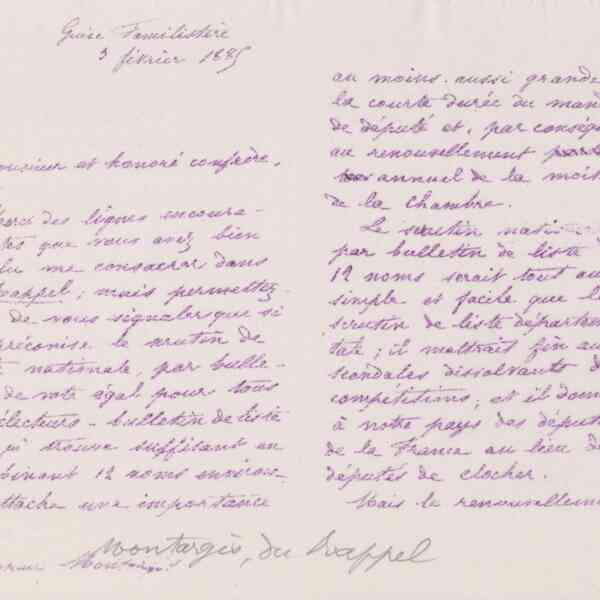 Guise Familistère
3 février 1885
monsieur et honoré confrère,
merci des lignes encoura-
que vous avez bien
lu me consacrer dans
Rappel; mais permettez-
de vous signaler que si
préconise le scrutin de
nationale, par bulle-
de vote égal pour tous
électeurs - bulletin de liste
trouve suffisant en
binant 12 noms environ,
attache une importance
Montargis, du Rappel
au moins aussi grande
la courte durée du mand
de député et, par conséq
au renouvellement
annuel de la moit
de la chambre.
Le scrutin nati
par bulletin de liste
12 noms serait tout au
simple et facile que le
scrutin de liste départem
tale; il mettrait fin au
scandales dissolvants d
compétitions; et il donn
à notre pays des déput
de la France au lieu de
députés de clocher.
Mais le renouvelleme